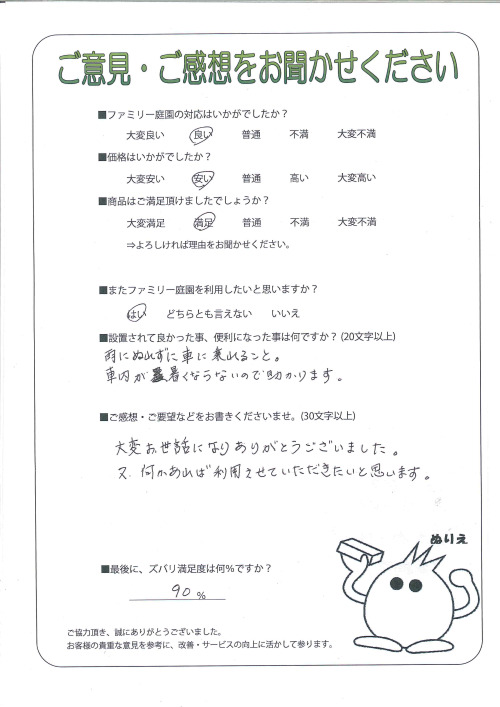 ご意見・ご感想をお聞かせください
■ファミリー庭園の対応はいかがでしたか？
大変良い 良い 普通 不満 大変不満
■価格はいかがでしたか？
大変安い 安い 普通 高い 大変高い
■商品はご満足頂けましたでしょうか？
大変満足 満足 普通 不満 大変不満
⇒よろしければ理由をお聞かせください。
■またファミリー庭園を利用したいと思いますか？
はい どちらとも言えない いいえ
■設置されて良かった事、便利になった事は何ですか？(20文字以上)
雨にぬれずに車に乗れること。
車内が暑くならないので助かります。
■ご感想・ご要望などをお書きくださいませ。(30文字以上)
大変お世話になりありがとうございました。
又、何かあれば利用させていただきたいと思います。
ぬりえ
■最後に、ズバリ満足度は何%ですか？
90 %
ご協力頂き、誠にありがとうございました。
お客様の貴重な意見を参考に、改善・サービスの向上に活かして参ります。